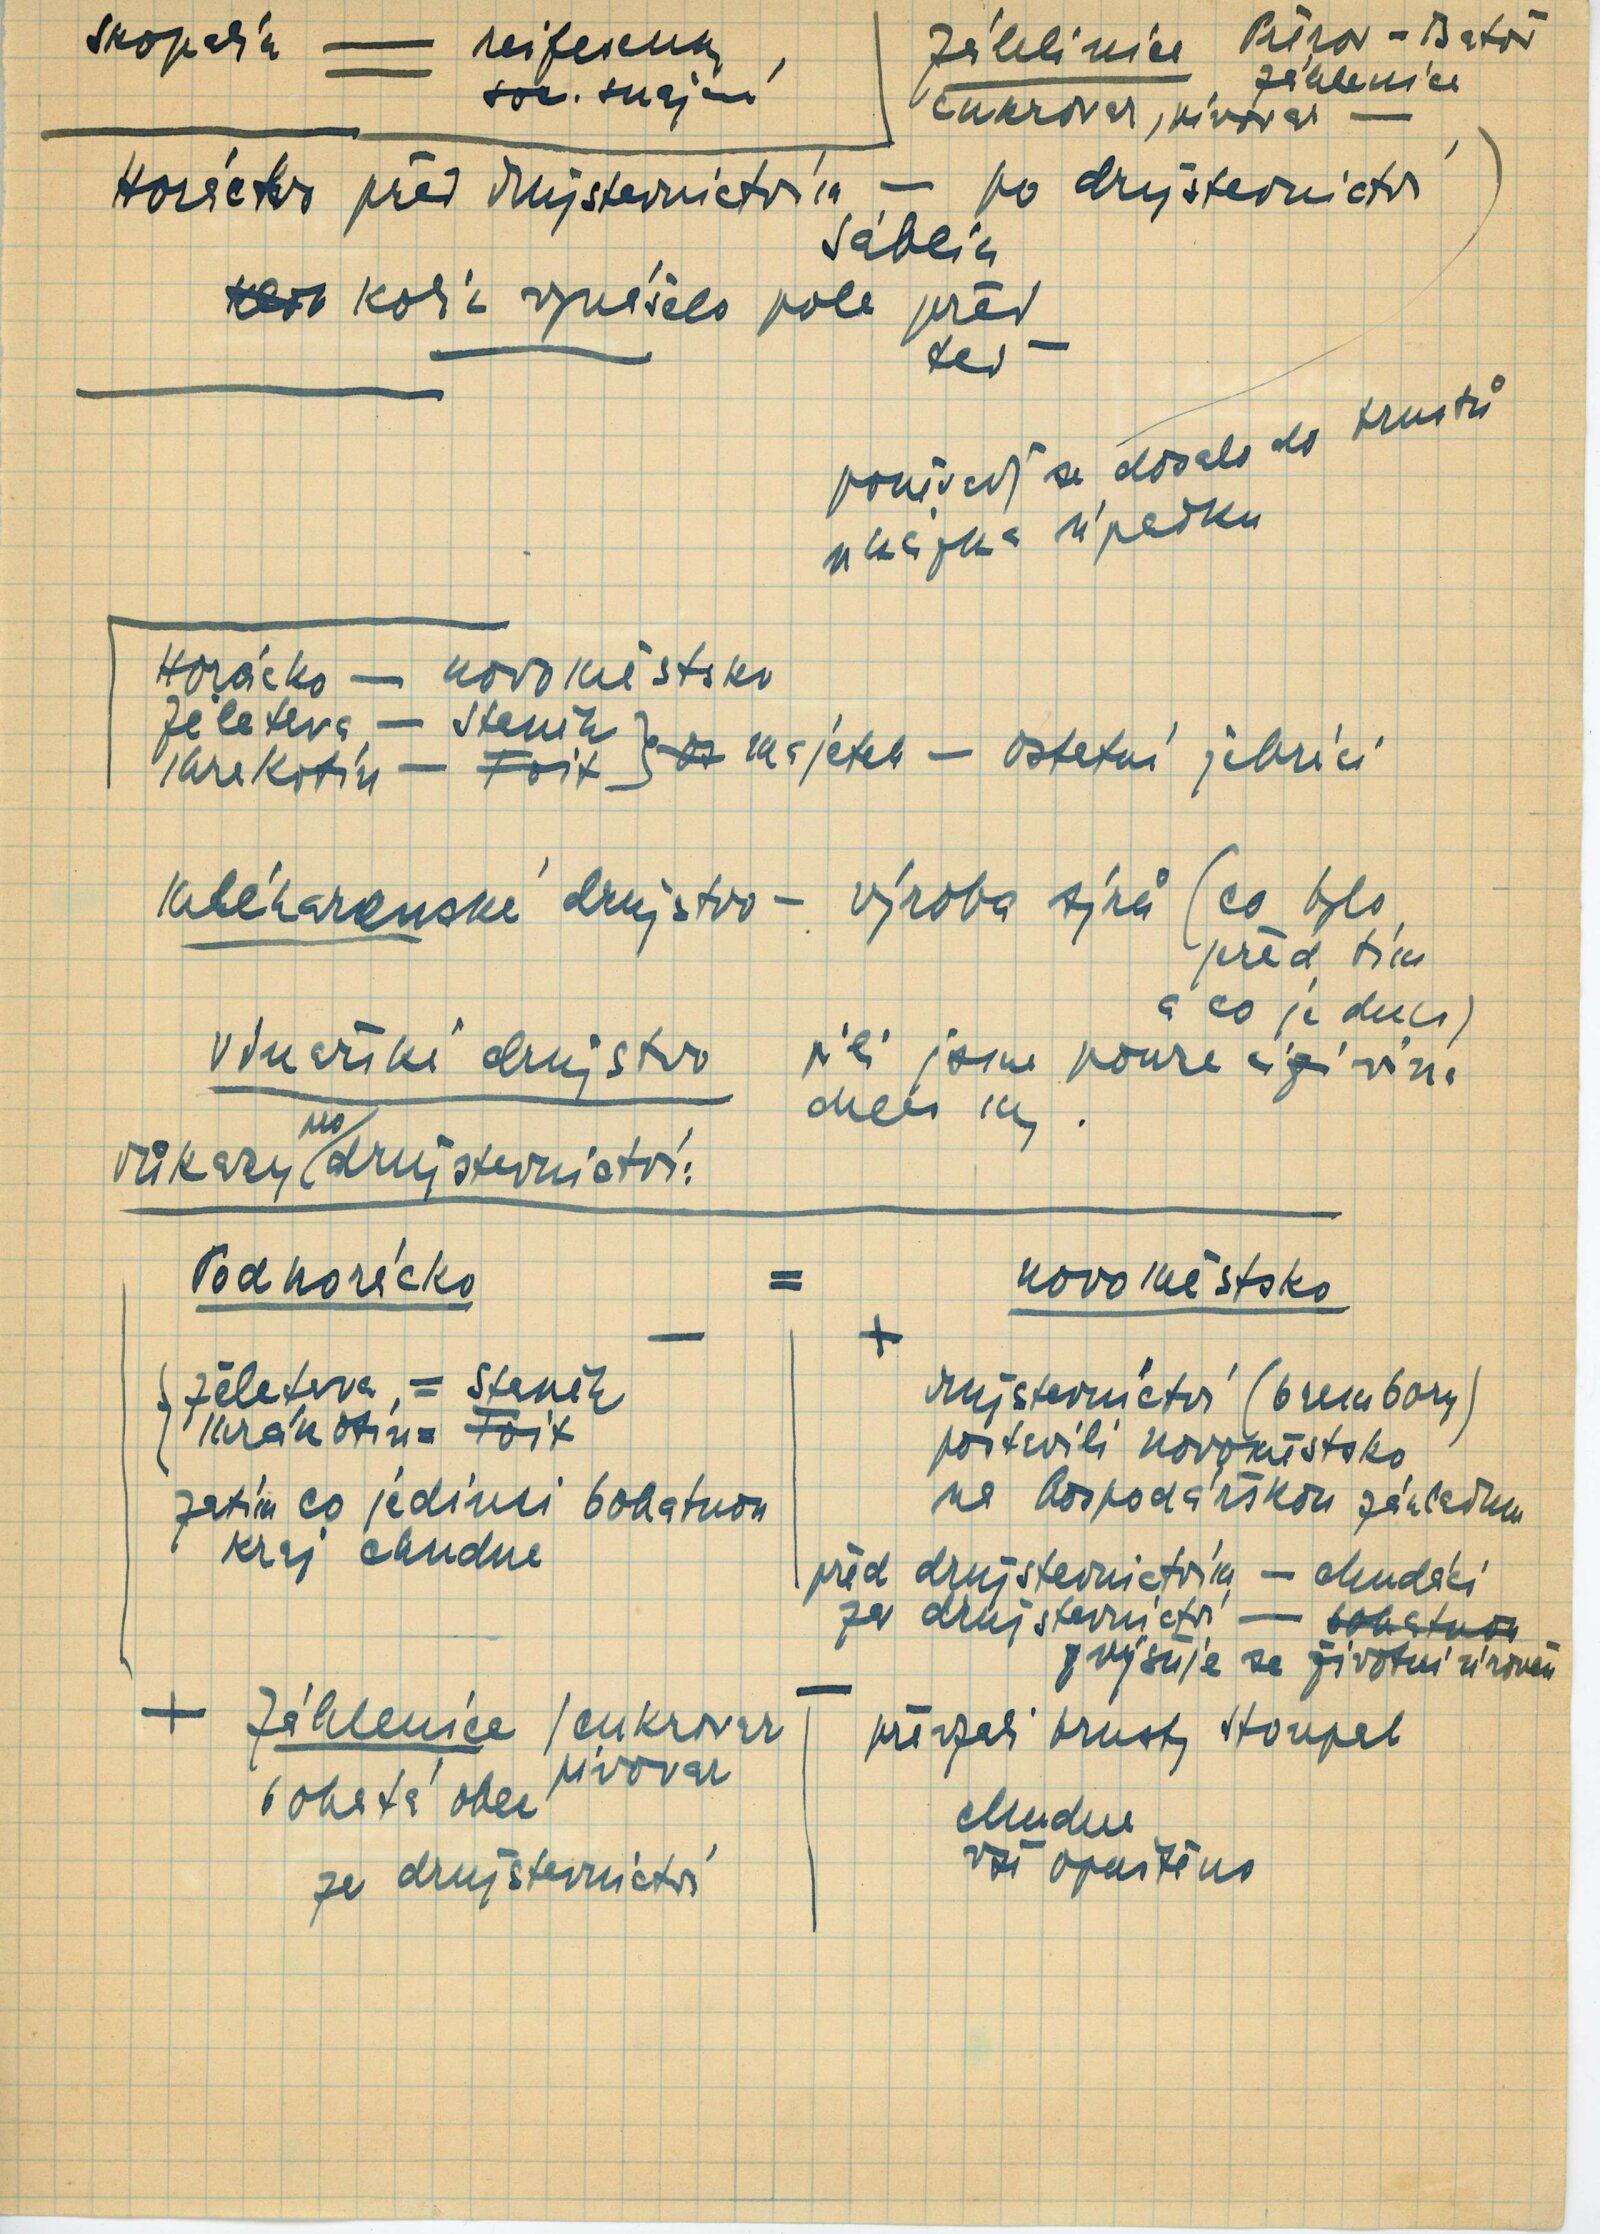 Skopalík = reifesenky,
soc. smajení
Záhlinice Přerov - Batov
Záhlenice
cukrovar, pivovar —
Horácko před družstevnictvím — po družstevnictví
Sáblík
kolik vynášelo pole před
teď —
poněvadž se dostalo do trustů
ukázka úpadku
Horácko — novoměstsko
Želetava — Steník
Mrákotín — Foit } majetek — ostatní žebráci
mlékarenské družstvo — výroba sýrů (co bylo
před tím
a co je dnes)
Vinařské družstvo pili jsme pouze cizí vína
dnes my.
důkazy pro družstevnictví:
Podhorácko = novoměstsko
— +
Želetava = Steník
Mrákotín = Foit
zatím co jedinci bohatnou
kraj chudne
družstevnictví (brambory)
postavili novoměstsko
na hospodářskou základnu
před družstevnictvím — chudáci
za družstevnictví — bohatnou
zvyšuje se životní úroveň
+ Záhlenice / cukrovar
pivovar
bohatá obec
za družstevnictví
— převzali trusty stoupal
chudne
vše opuštěno